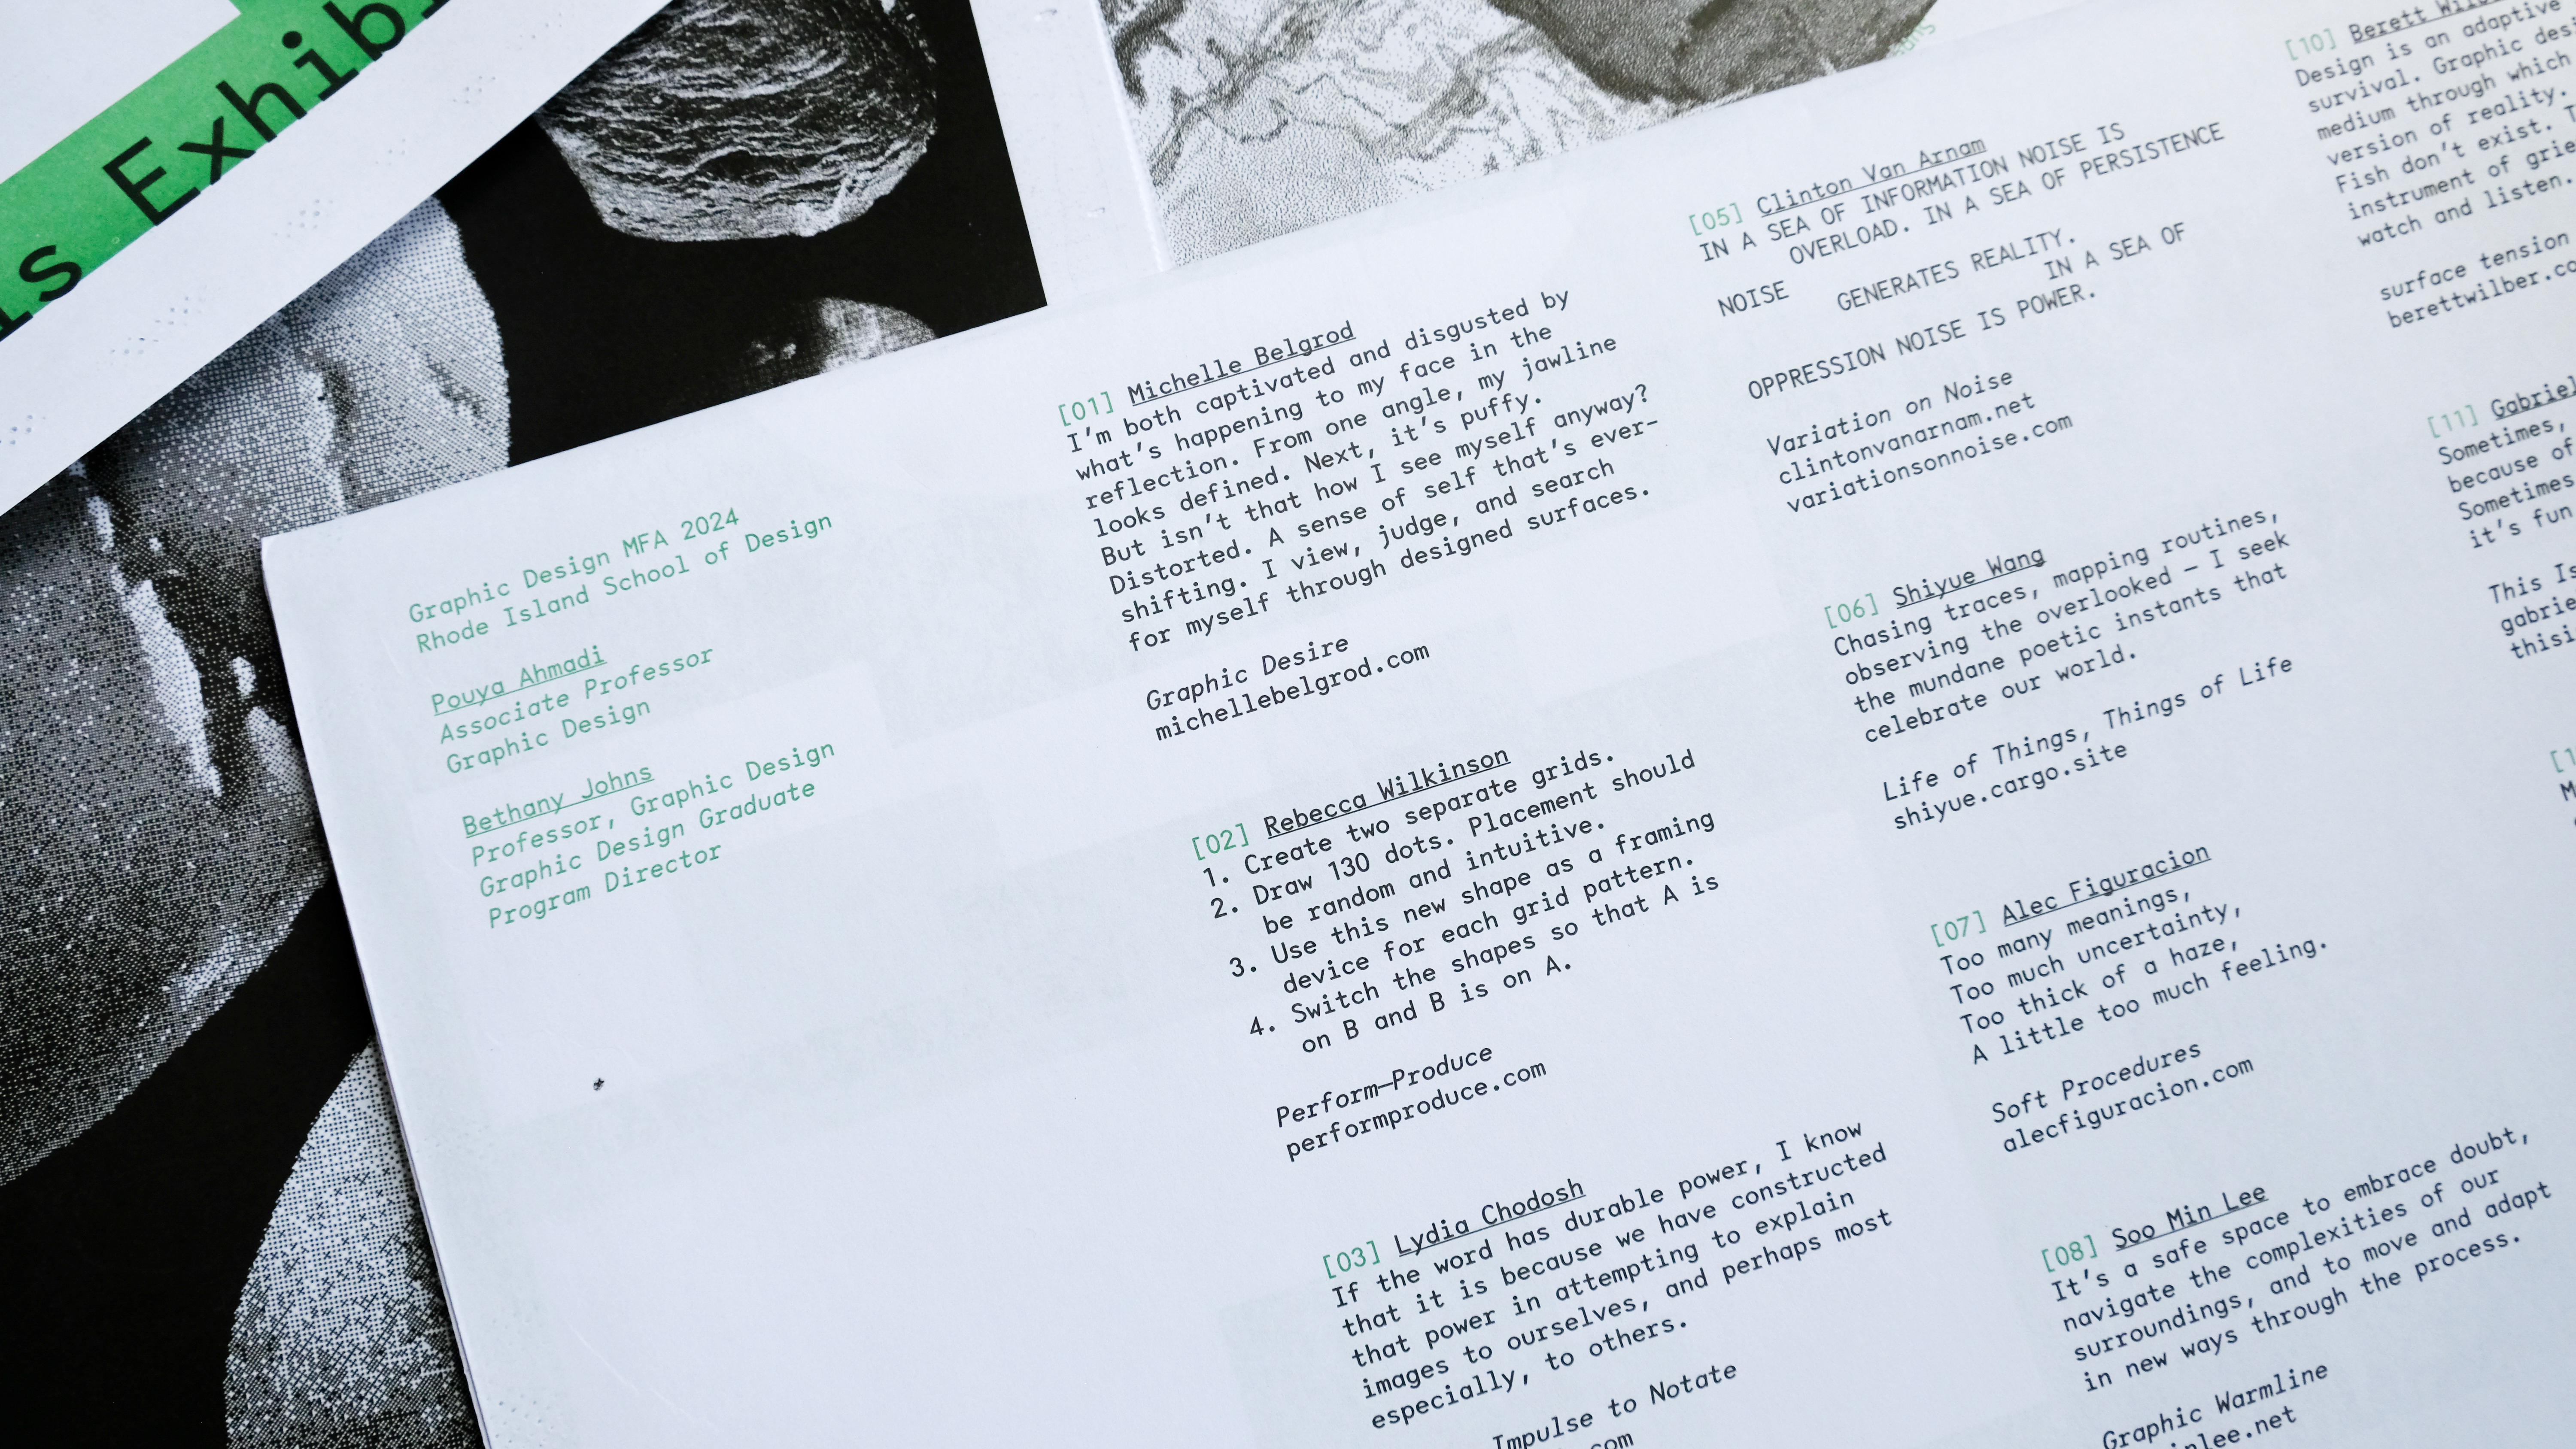 s Exhib
Graphic Design MFA 2024
Rhode Island School of Design
Pouya Ahmadi
Associate Professor
Graphic Design
Bethany Johns
Professor, Graphic Design
Graphic Design Graduate
Program Director
[01] Michelle Belgrod
I'm both captivated and disgusted by
what's happening to my face in the
reflection. From one angle, my jawline
looks defined. Next, it's puffy.
But isn't that how I see myself anyway?
Distorted. A sense of self that's ever-
shifting. I view, judge, and search
for myself through designed surfaces.
Graphic Desire
michellebelgrod.com
[02] Rebecca Wilkinson
1. Create two separate grids.
2. Draw 130 dots. Placement should
be random and intuitive.
3. Use this new shape as a framing
device for each grid pattern.
4. Switch the shapes so that A is
on B and B is on A.
Perform–Produce
performproduce.com
[03] Lydia Chodosh
If the word has durable power, I know
that it is because we have constructed
that power in attempting to explain
images to ourselves, and perhaps most
especially, to others.
Impulse to Notate
com
[05] Clinton Van Arnam
IN A SEA OF INFORMATION NOISE IS
OVERLOAD. IN A SEA OF PERSISTENCE
NOISE GENERATES REALITY.
IN A SEA OF
OPPRESSION NOISE IS POWER.
Variation on Noise
clintonvanarnam.net
variationsonnoise.com
[06] Shiyue Wang
Chasing traces, mapping routines,
observing the overlooked – I seek
the mundane poetic instants that
celebrate our world.
Life of Things, Things of Life
shiyue.cargo.site
[07] Alec Figuracion
Too many meanings,
Too much uncertainty,
Too thick of a haze,
A little too much feeling.
Soft Procedures
alecfiguracion.com
[08] Soo Min Lee
It's a safe space to embrace doubt,
navigate the complexities of our
surroundings, and to move and adapt
in new ways through the process.
Graphic Warmline
nlee.net
[10] Berett
Design is an adaptive
survival. Graphic des
medium through which
version of reality.
Fish don't exist.
instrument of grie
watch and listen.
surface tension
berettwilber.co
[11] Gabriel
Sometimes,
because of
Sometimes
it's fun
This Is
gabrie
thisi